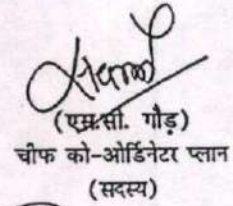 (एम.सी. गौड़)
चीफ को-ओर्डिनेटर प्लान
(सदस्य)